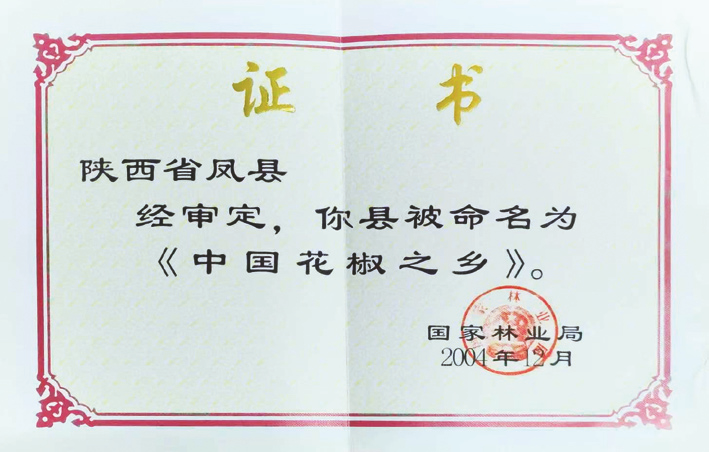 证 书
陕西省凤县
经审定，你县被命名为
《中国花椒之乡》。
国家林业局
2004年12月